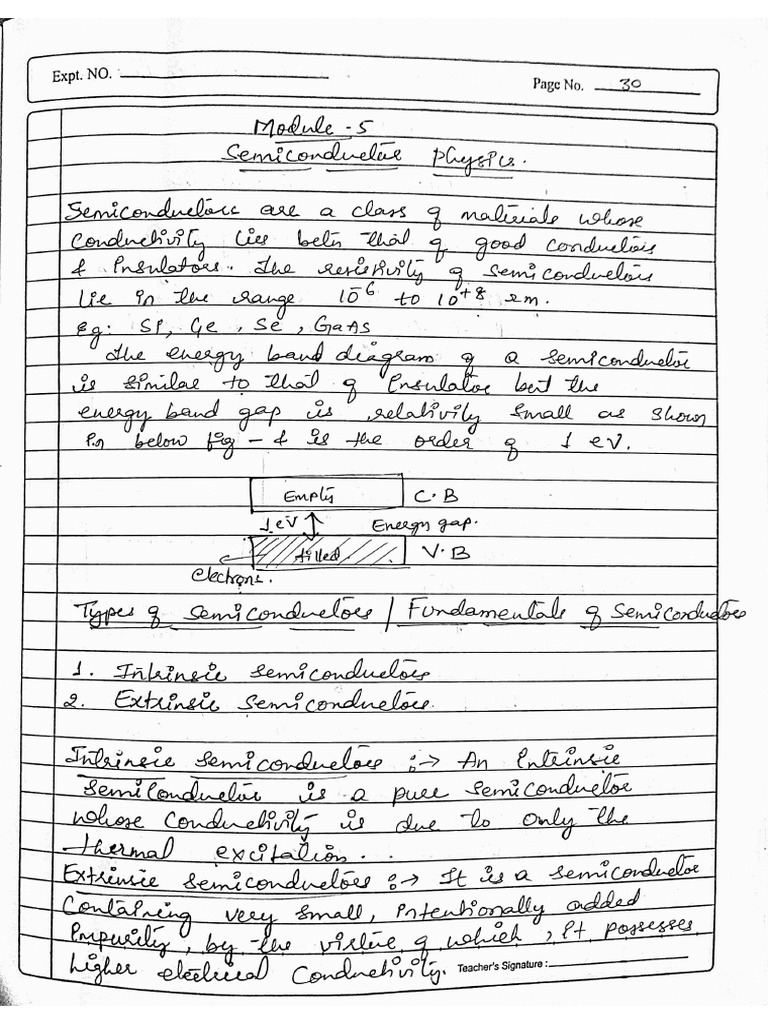 Expt. NO.
Page No. 30
Module - 5
Semiconductor Physics.
Semiconductors are a class of materials whose
Conductivity lies betn that of good conductors
& Insulators. The resistivity of semiconductors
lie in the range 10⁻⁶ to 10⁺⁸ Ωm.
eg: Si, Ge, Se, GaAs
The energy band diagram of a semiconductor
is similar to that of Insulator but the
energy band gap is relativily small as shown
in below fig - & is the order of 1 eV.
Empty C.B
1 eV Energy gap.
filled V.B
electrons.
Types of Semiconductors / Fundamentals of Semiconductors
1. Intrinsic Semiconductors
2. Extrinsic Semiconductors.
Intrinsic Semiconductors :→ An Intrinsic
Semiconductor is a pure semiconductor
whose conductivity is due to only the
thermal excitation.
Extrinsic Semiconductors :→ It is a semiconductor
Containing very small, intentionally added
Impurity, by the virtue of which, it possesses
higher electrical Conductivity.
Teacher's Signature :